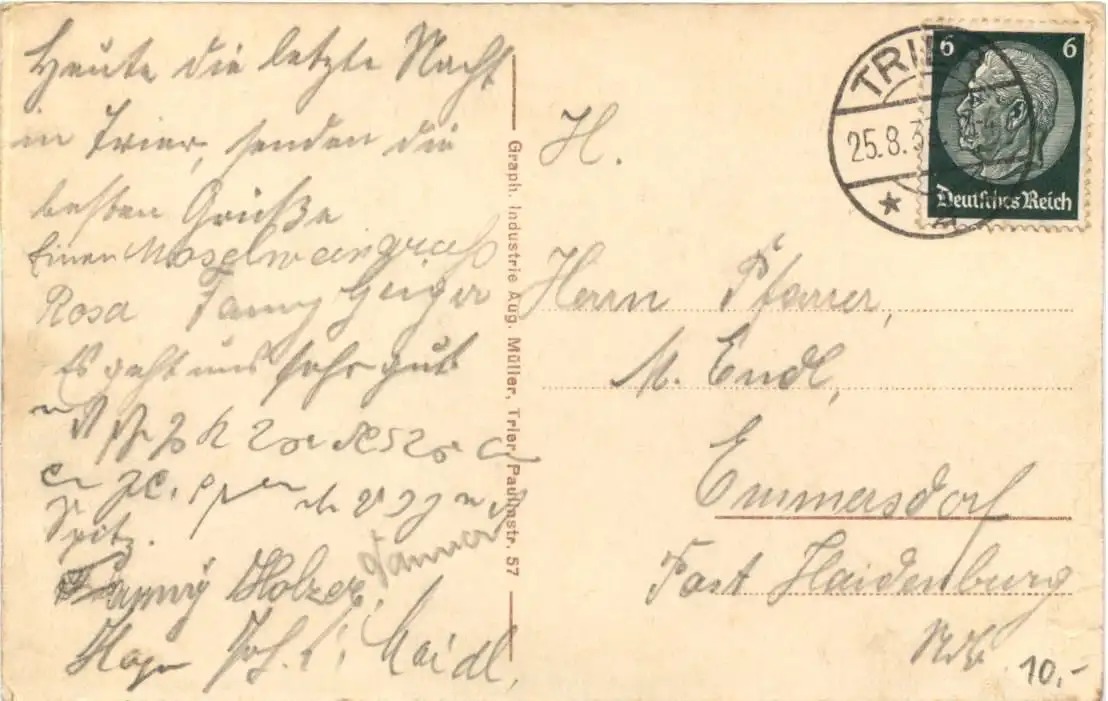 Heute die letzte Nacht
in Trier, senden die
besten Grüße
Einen Moselweingruß
Rosa Fanny Geiger
Es geht uns sehr gut
Spitz.
Holzer,
Joh. Maidl,
Graph. Industrie Aug. Müller, Trier, Paulinstr. 57
TRIER
25.8.3
6 6
Deutsches Reich
H.
Herrn Pfarrer,
M. Endl,
Emmersdorf
Post Haidenburg
Ndb
10.-